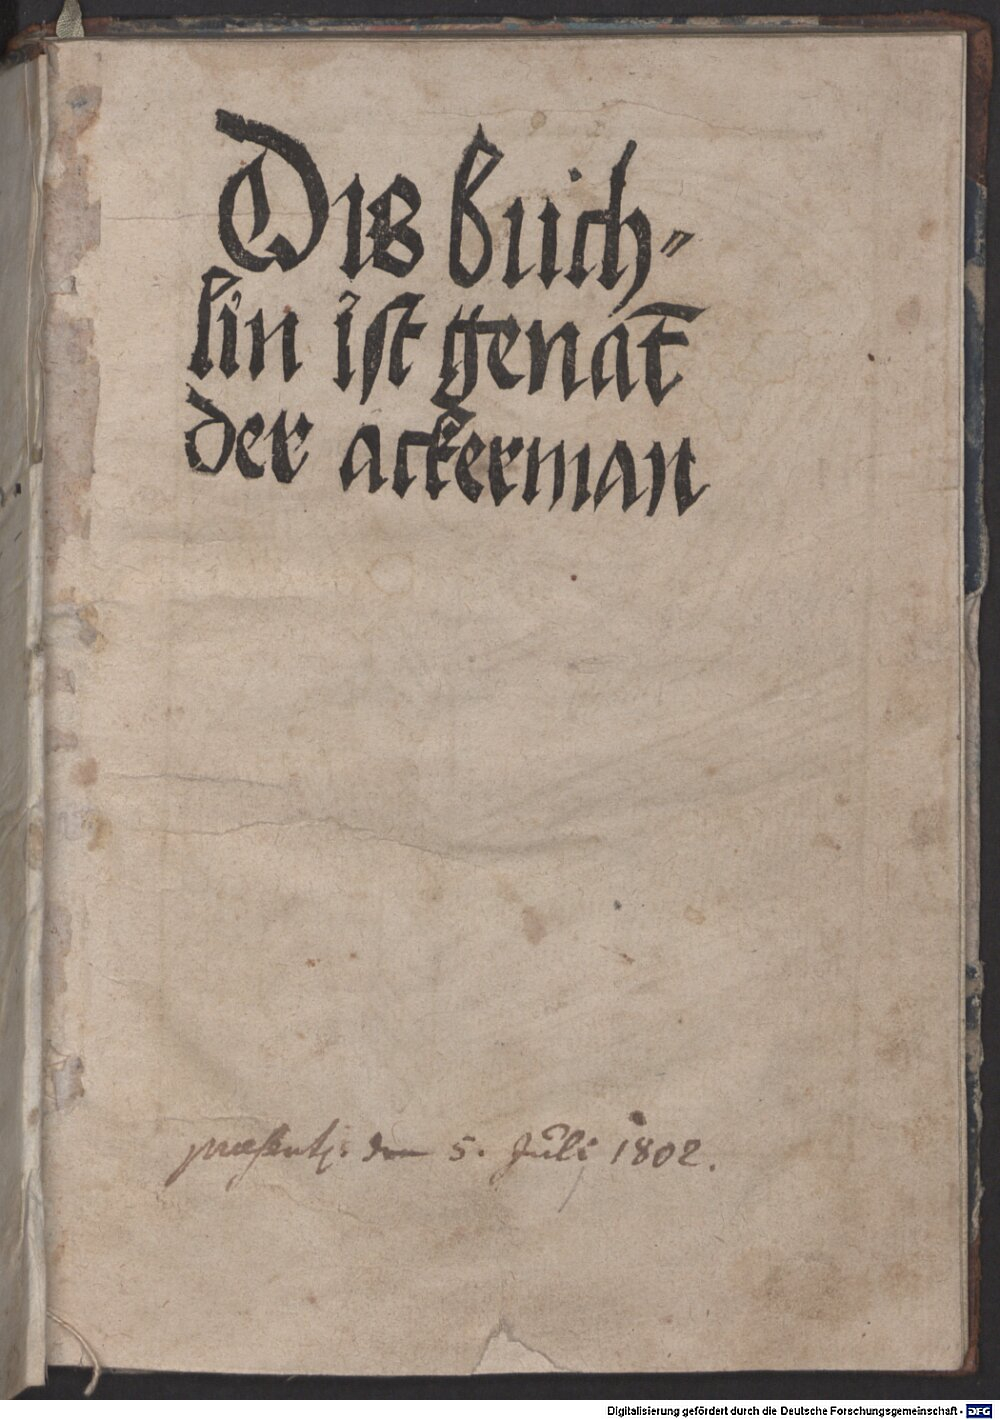 Dis buch⸗
lin ist genāt
der ackerman
praesent: den 5. Juli 1802.
Digitalisierung gefördert durch die Deutsche Forschungsgemeinschaft - DFG